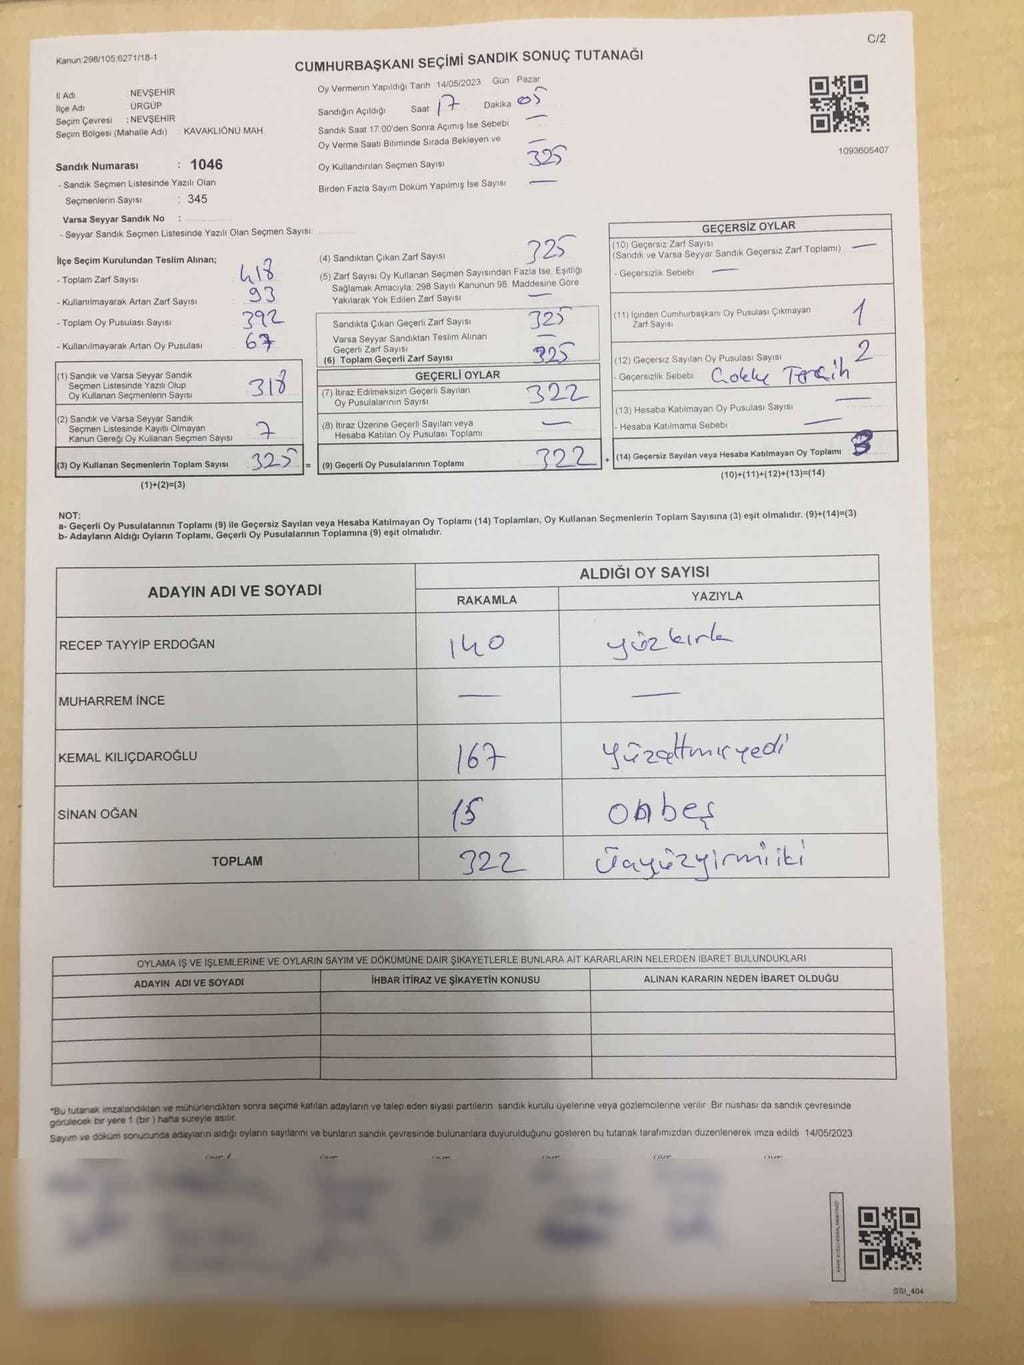 C/2
Kanun:298/105;6271/18-1
CUMHURBAŞKANI SEÇİMİ SANDIK SONUÇ TUTANAĞI
İl Adı NEVŞEHİR
İlçe Adı ÜRGÜP
Seçim Çevresi : NEVŞEHİR
Seçim Bölgesi (Mahalle Adı) KAVAKLIÖNÜ MAH
Oy Vermenin Yapıldığı Tarih 14/05/2023 Gün Pazar
Sandığın Açıldığı Saat 17 Dakika 05
Sandık Saat 17:00'den Sonra Açımış İse Sebebi —
Oy Verme Saati Bitiminde Sırada Bekleyen ve —
Oy Kullandırılan Seçmen Sayısı 325
Birden Fazla Sayım Döküm Yapılmış İse Sayısı —
1093605407
Sandık Numarası : 1046
- Sandık Seçmen Listesinde Yazılı Olan
Seçmenlerin Sayısı : 345
Varsa Seyyar Sandık No :
- Seyyar Sandık Seçmen Listesinde Yazılı Olan Seçmen Sayısı:
İlçe Seçim Kurulundan Teslim Alınan;
- Toplam Zarf Sayısı 418
- Kullanılmayarak Artan Zarf Sayısı 93
- Toplam Oy Pusulası Sayısı 392
- Kullanılmayarak Artan Oy Pusulası 67
(1) Sandık ve Varsa Seyyar Sandık
Seçmen Listesinde Yazılı Olup
Oy Kullanan Seçmenlerin Sayısı 318
(2) Sandık ve Varsa Seyyar Sandık
Seçmen Listesinde Kayıtlı Olmayan
Kanun Gereği Oy Kullanan Seçmen Sayısı 7
(3) Oy Kullanan Seçmenlerin Toplam Sayısı 325 =
(1)+(2)=(3)
(4) Sandıktan Çıkan Zarf Sayısı 325
(5) Zarf Sayısı Oy Kullanan Seçmen Sayısından Fazla İse, Eşitliği
Sağlamak Amacıyla; 298 Sayılı Kanunun 98. Maddesine Göre
Yakılarak Yok Edilen Zarf Sayısı —
Sandıkta Çıkan Geçerli Zarf Sayısı 325
Varsa Seyyar Sandıktan Teslim Alınan
Geçerli Zarf Sayısı —
(6) Toplam Geçerli Zarf Sayısı 325
GEÇERLİ OYLAR
(7) İtiraz Edilmeksizin Geçerli Sayılan
Oy Pusulalarının Sayısı 322
(8) İtiraz Üzerine Geçerli Sayılan veya
Hesaba Katılan Oy Pusulası Toplamı —
(9) Geçerli Oy Pusulalarının Toplamı 322 +
GEÇERSİZ OYLAR
(10) Geçersiz Zarf Sayısı
(Sandık ve Varsa Seyyar Sandık Geçersiz Zarf Toplamı) —
- Geçersizlik Sebebi —
(11) İçinden Cumhurbaşkanı Oy Pusulası Çıkmayan
Zarf Sayısı 1
(12) Geçersiz Sayılan Oy Pusulası Sayısı 2
- Geçersizlik Sebebi Çoklu Tercih
(13) Hesaba Katılmayan Oy Pusulası Sayısı —
- Hesaba Katılmama Sebebi —
(14) Geçersiz Sayılan veya Hesaba Katılmayan Oy Toplamı 3
(10)+(11)+(12)+(13)=(14)
NOT:
a- Geçerli Oy Pusulalarının Toplamı (9) ile Geçersiz Sayılan veya Hesaba Katılmayan Oy Toplamı (14) Toplamları, Oy Kullanan Seçmenlerin Toplam Sayısına (3) eşit olmalıdır. (9)+(14)=(3)
b- Adayların Aldığı Oyların Toplamı, Geçerli Oy Pusulalarının Toplamına (9) eşit olmalıdır.
ADAYIN ADI VE SOYADI
ALDIĞI OY SAYISI
RAKAMLA YAZIYLA
RECEP TAYYİP ERDOĞAN 140 yüzkırk
MUHARREM İNCE — —
KEMAL KILIÇDAROĞLU 167 yüzaltmışyedi
SİNAN OĞAN 15 onbeş
TOPLAM 322 üçyüzyirmiiki
OYLAMA İŞ VE İŞLEMLERİNE VE OYLARIN SAYIM VE DÖKÜMÜNE DAİR ŞİKAYETLERLE BUNLARA AİT KARARLARIN NELERDEN İBARET BULUNDUKLARI
ADAYIN ADI VE SOYADI İHBAR İTİRAZ VE ŞİKAYETİN KONUSU ALINAN KARARIN NEDEN İBARET OLDUĞU
*Bu tutanak imzalandıktan ve mühürlendikten sonra seçime katılan adayların ve talep eden siyasi partilerin sandık kurulu üyelerine veya gözlemcilerine verilir. Bir nüshası da sandık çevresinde
görülecek bir yere 1 (bir) hafta süreyle asılır.
Sayım ve döküm sonucunda adayların aldığı oyların sayılarını ve bunların sandık çevresinde bulunanlara duyurulduğunu gösteren bu tutanak tarafımızdan düzenlenerek imza edildi 14/05/2023
SSI_404